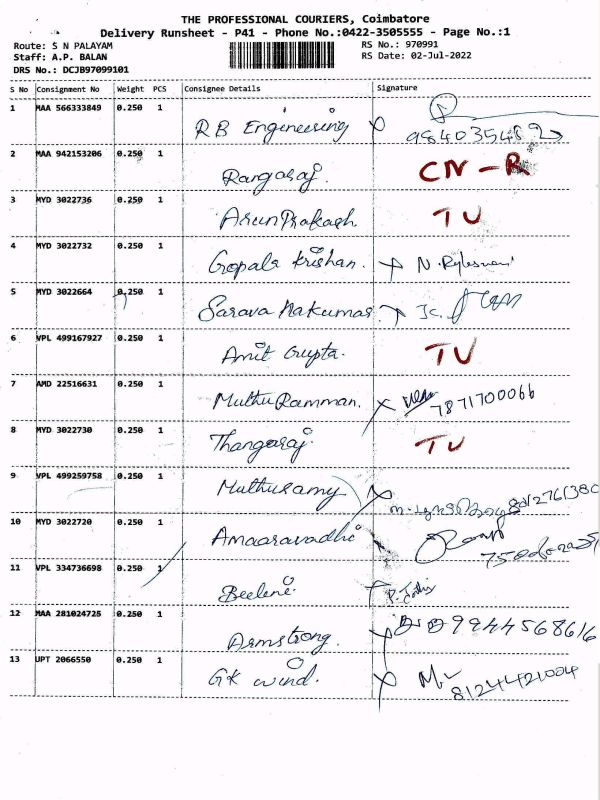 THE PROFESSIONAL COURIERS, Coimbatore
Delivery Runsheet - P41 - Phone No.:0422-3505555 - Page No.:1
Route: S N PALAYAM RS No.: 970991
Staff: A.P. BALAN RS Date: 02-Jul-2022
DRS No.: DCJB97099101
S No Consignment No Weight PCS Consignee Details Signature
1 MAA 566333849 0.250 1 RB Engineering
2 MAA 942153206 0.250 1 Rangaraj. CN-R
3 MYD 3022736 0.250 1 Arun Prakash TU
4 MYD 3022732 0.250 1 Gopala Krishan.
5 MYD 3022664 0.250 1 Saravanakumar
6 VPL 499167927 0.250 1 Amit Gupta. TU
7 AMD 22516631 0.250 1 Muthu Ramman. 7871700066
8 MYD 3022730 0.250 1 Thangaraj. TU
9 VPL 499259758 0.250 1 Muthusamy
10 MYD 3022720 0.250 1
11 VPL 334736698 0.250 1
12 MAA 281024725 0.250 1 Armstrong. 9944568616
13 UPT 2066550 0.250 1 GK wind. 8124421004